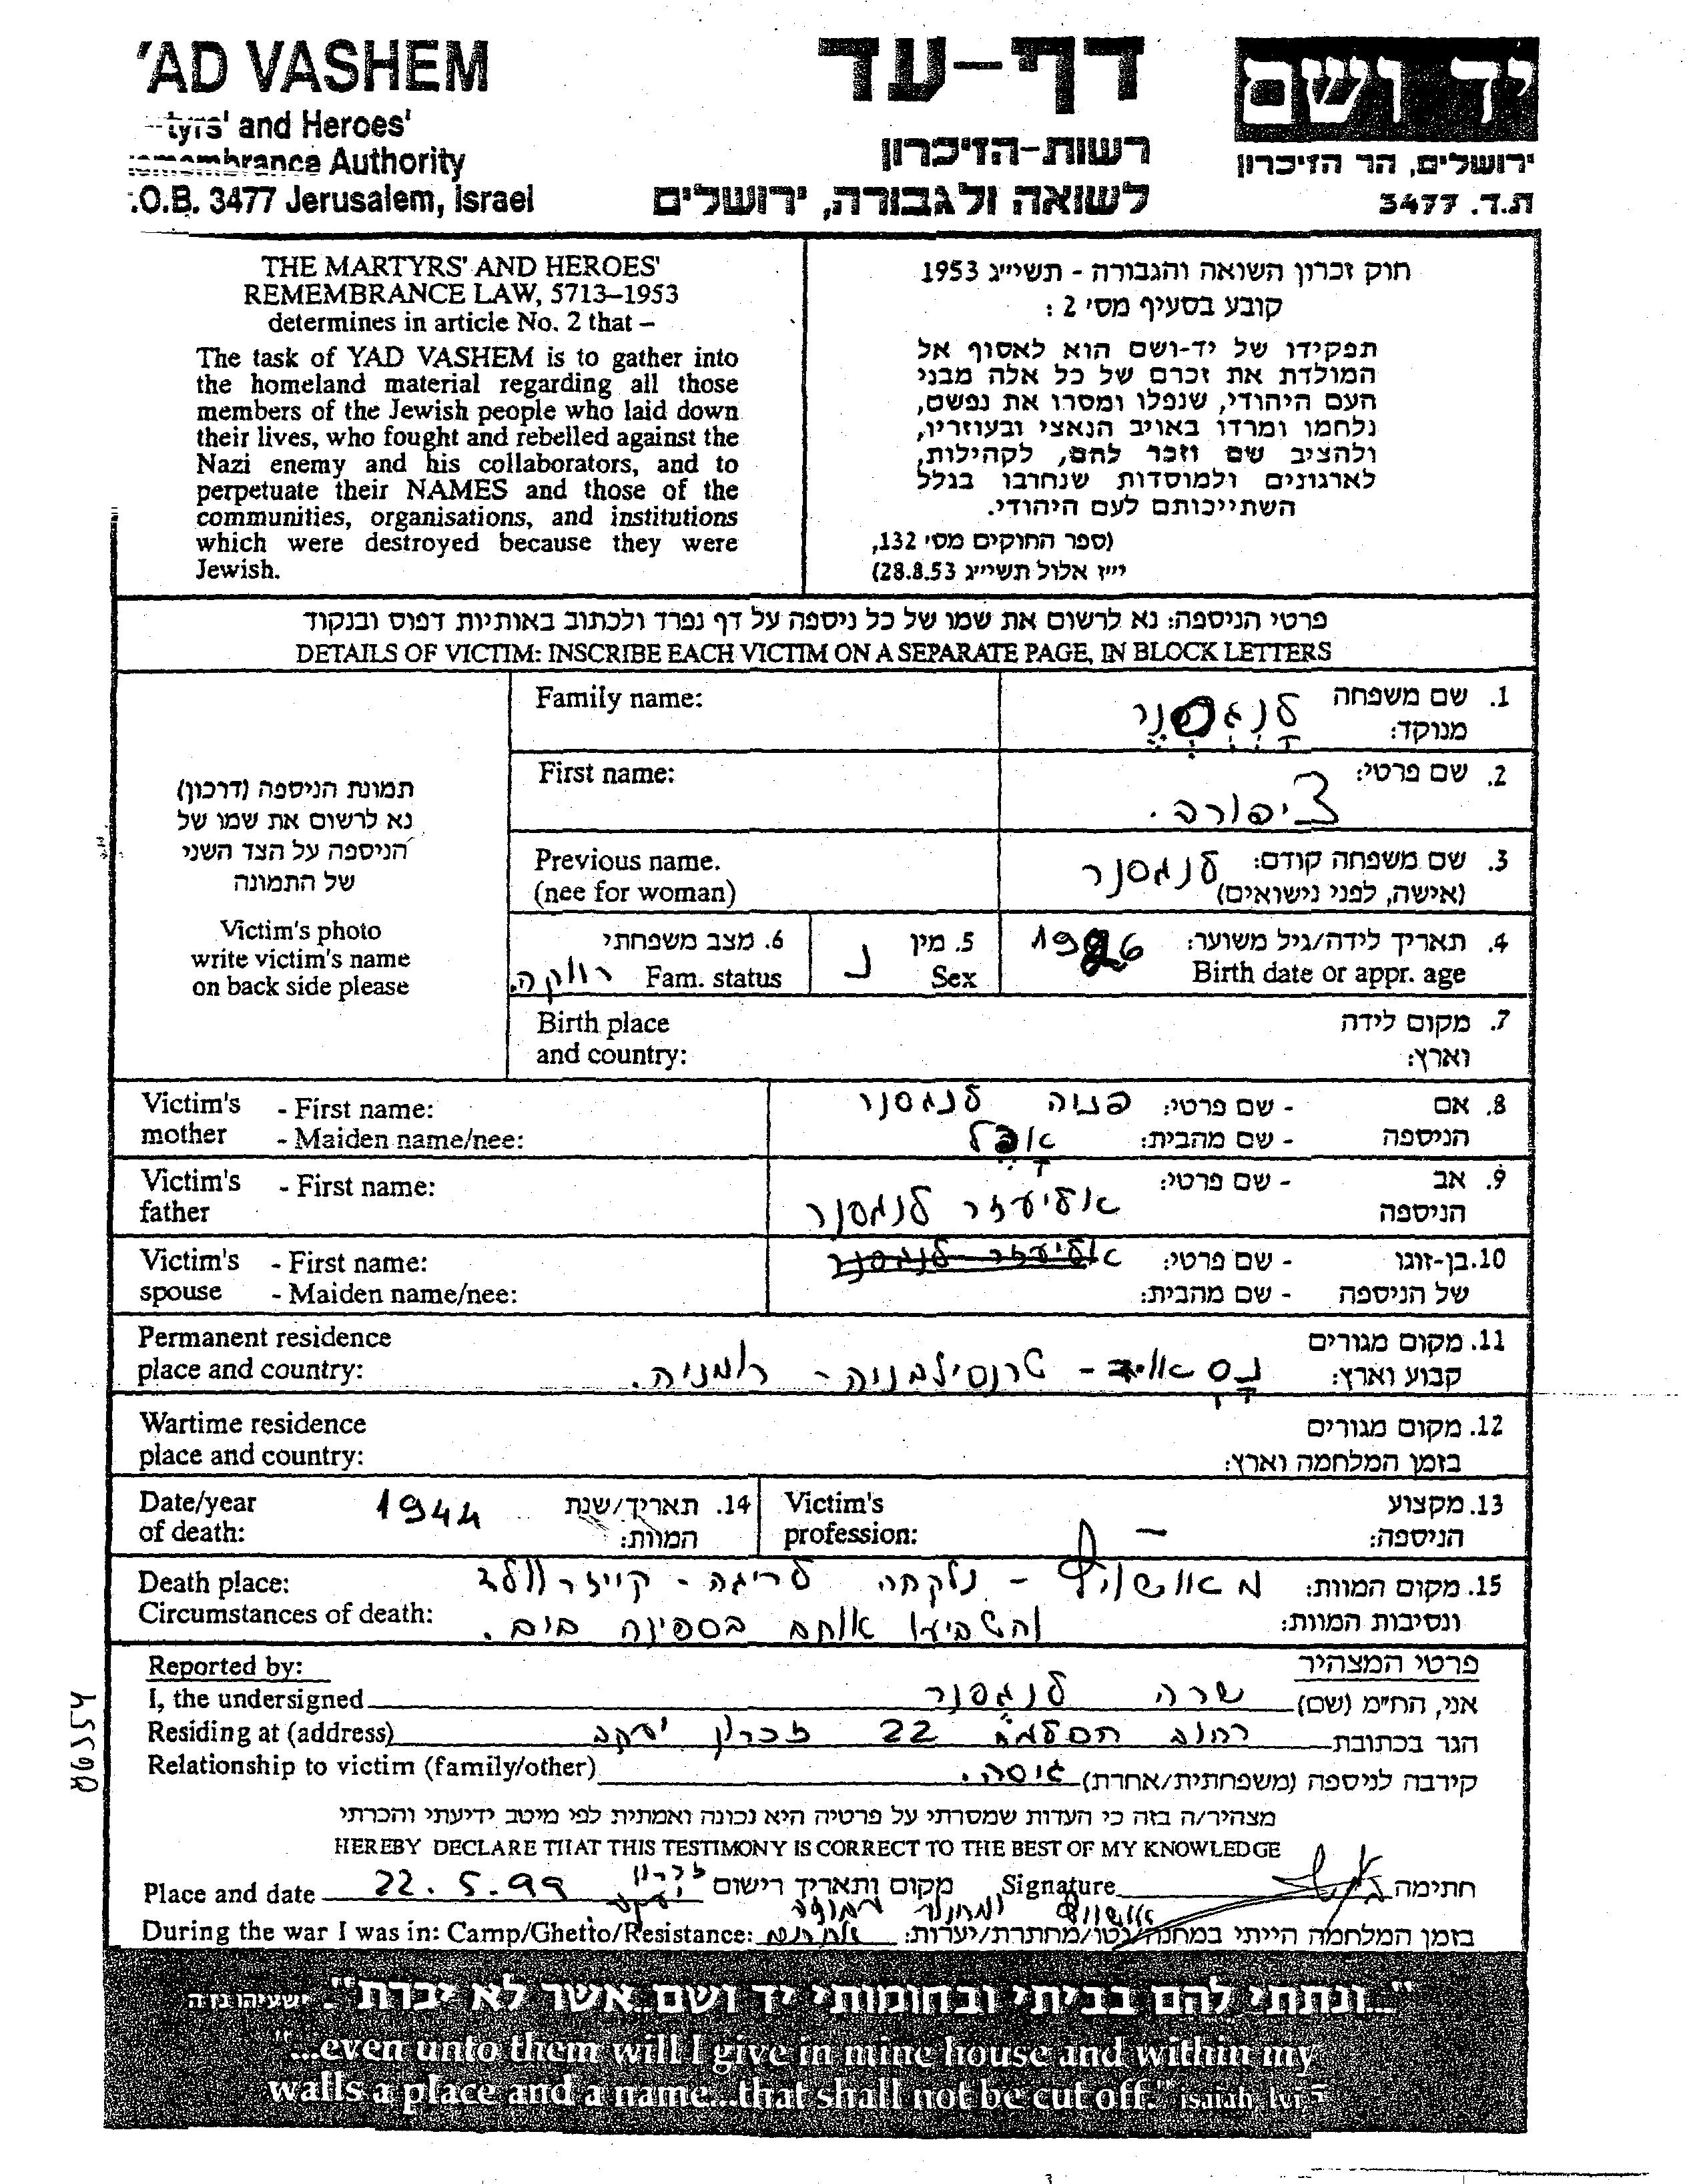 'AD VASHEM
tyrs' and Heroes'
Authority
.O.B. 3477 Jerusalem, Israel
דף-עד
רשות-הזיכרון
לשואה ולגבורה, ירושלים
יד ושם
ירושלים, הר הזיכרון
ת.ד. 3477
THE MARTYRS' AND HEROES'
REMEMBRANCE LAW, 5713–1953
determines in article No. 2 that –
The task of YAD VASHEM is to gather into
the homeland material regarding all those
members of the Jewish people who laid down
their lives, who fought and rebelled against the
Nazi enemy and his collaborators, and to
perpetuate their NAMES and those of the
communities, organisations, and institutions
which were destroyed because they were
Jewish.
חוק זכרון השואה והגבורה - תשי״ג 1953
קובע בסעיף מס׳ 2 :
תפקידו של יד-ושם הוא לאסוף אל
המולדת את זכרם של כל אלה מבני
העם היהודי, שנפלו ומסרו את נפשם,
נלחמו ומרדו באויב הנאצי ובעוזריו,
ולהציב שם וזכר להם, לקהילות,
לארגונים ולמוסדות שנחרבו בגלל
השתייכותם לעם היהודי.
(ספר החוקים מס׳ 132,
י״ז אלול תשי״ג 28.8.53)
פרטי הניספה: נא לרשום את שמו של כל ניספה על דף נפרד ולכתוב באותיות דפוס ובנקוד
DETAILS OF VICTIM: INSCRIBE EACH VICTIM ON A SEPARATE PAGE, IN BLOCK LETTERS
תמונת הניספה (דרכון)
נא לרשום את שמו של
הניספה על הצד השני
של התמונה
Victim's photo
write victim's name
on back side please
Family name: לנגסנר 1. שם משפחה
מנוקד:
First name: ציפורה. 2. שם פרטי:
Previous name. לנגסנר 3. שם משפחה קודם:
(nee for woman) (אישה, לפני נישואים)
6. מצב משפחתי 5. מין 1926 4. תאריך לידה/גיל משוער:
Fam. status רווקה. Sex נ Birth date or appr. age
Birth place 7. מקום לידה
and country: וארץ:
Victim's - First name: פניה לנגסנר - שם פרטי: 8. אם
mother - Maiden name/nee: - שם מהבית: הניספה
Victim's - First name: אליעזר לנגסנר - שם פרטי: 9. אב
father הניספה
Victim's - First name: אליעזר לנגסנר - שם פרטי: 10. בן-זוגו
spouse - Maiden name/nee: - שם מהבית: של הניספה
Permanent residence 11. מקום מגורים
place and country: טרנסילבניה - רומניה. קבוע וארץ:
Wartime residence 12. מקום מגורים
place and country: בזמן המלחמה וארץ:
Date/year 1944 14. תאריך/שנת Victim's 13. מקצוע
of death: המוות: profession: – הניספה:
Death place: מאושויץ - נלקחה לריגה - קייזרוולד 15. מקום המוות:
Circumstances of death: והטביעו אותם בספינה בים. ונסיבות המוות:
Reported by: פרטי המצהיר
I, the undersigned שרה לנגסנר אני, הח״מ (שם)
Residing at (address) רחוב 22 זכרון יעקב הגר בכתובת
Relationship to victim (family/other) גיסה. קירבה לניספה (משפחתית/אחרת)
מצהיר/ה בזה כי העדות שמסרתי על פרטיה היא נכונה ואמתית לפי מיטב ידיעתי והכרתי
HEREBY DECLARE THAT THIS TESTIMONY IS CORRECT TO THE BEST OF MY KNOWLEDGE
Place and date 22.5.99 זכרון יעקב מקום ותאריך רישום Signature חתימה
During the war I was in: Camp/Ghetto/Resistance: אושויץ בזמן המלחמה הייתי במחנה/גטו/מחתרת/יערות:
"...ונתתי להם בביתי ובחומותי יד ושם אשר לא יכרת".
"...even unto them will I give in mine house and within my
walls a place and a name...that shall not be cut off." isaiah lvi